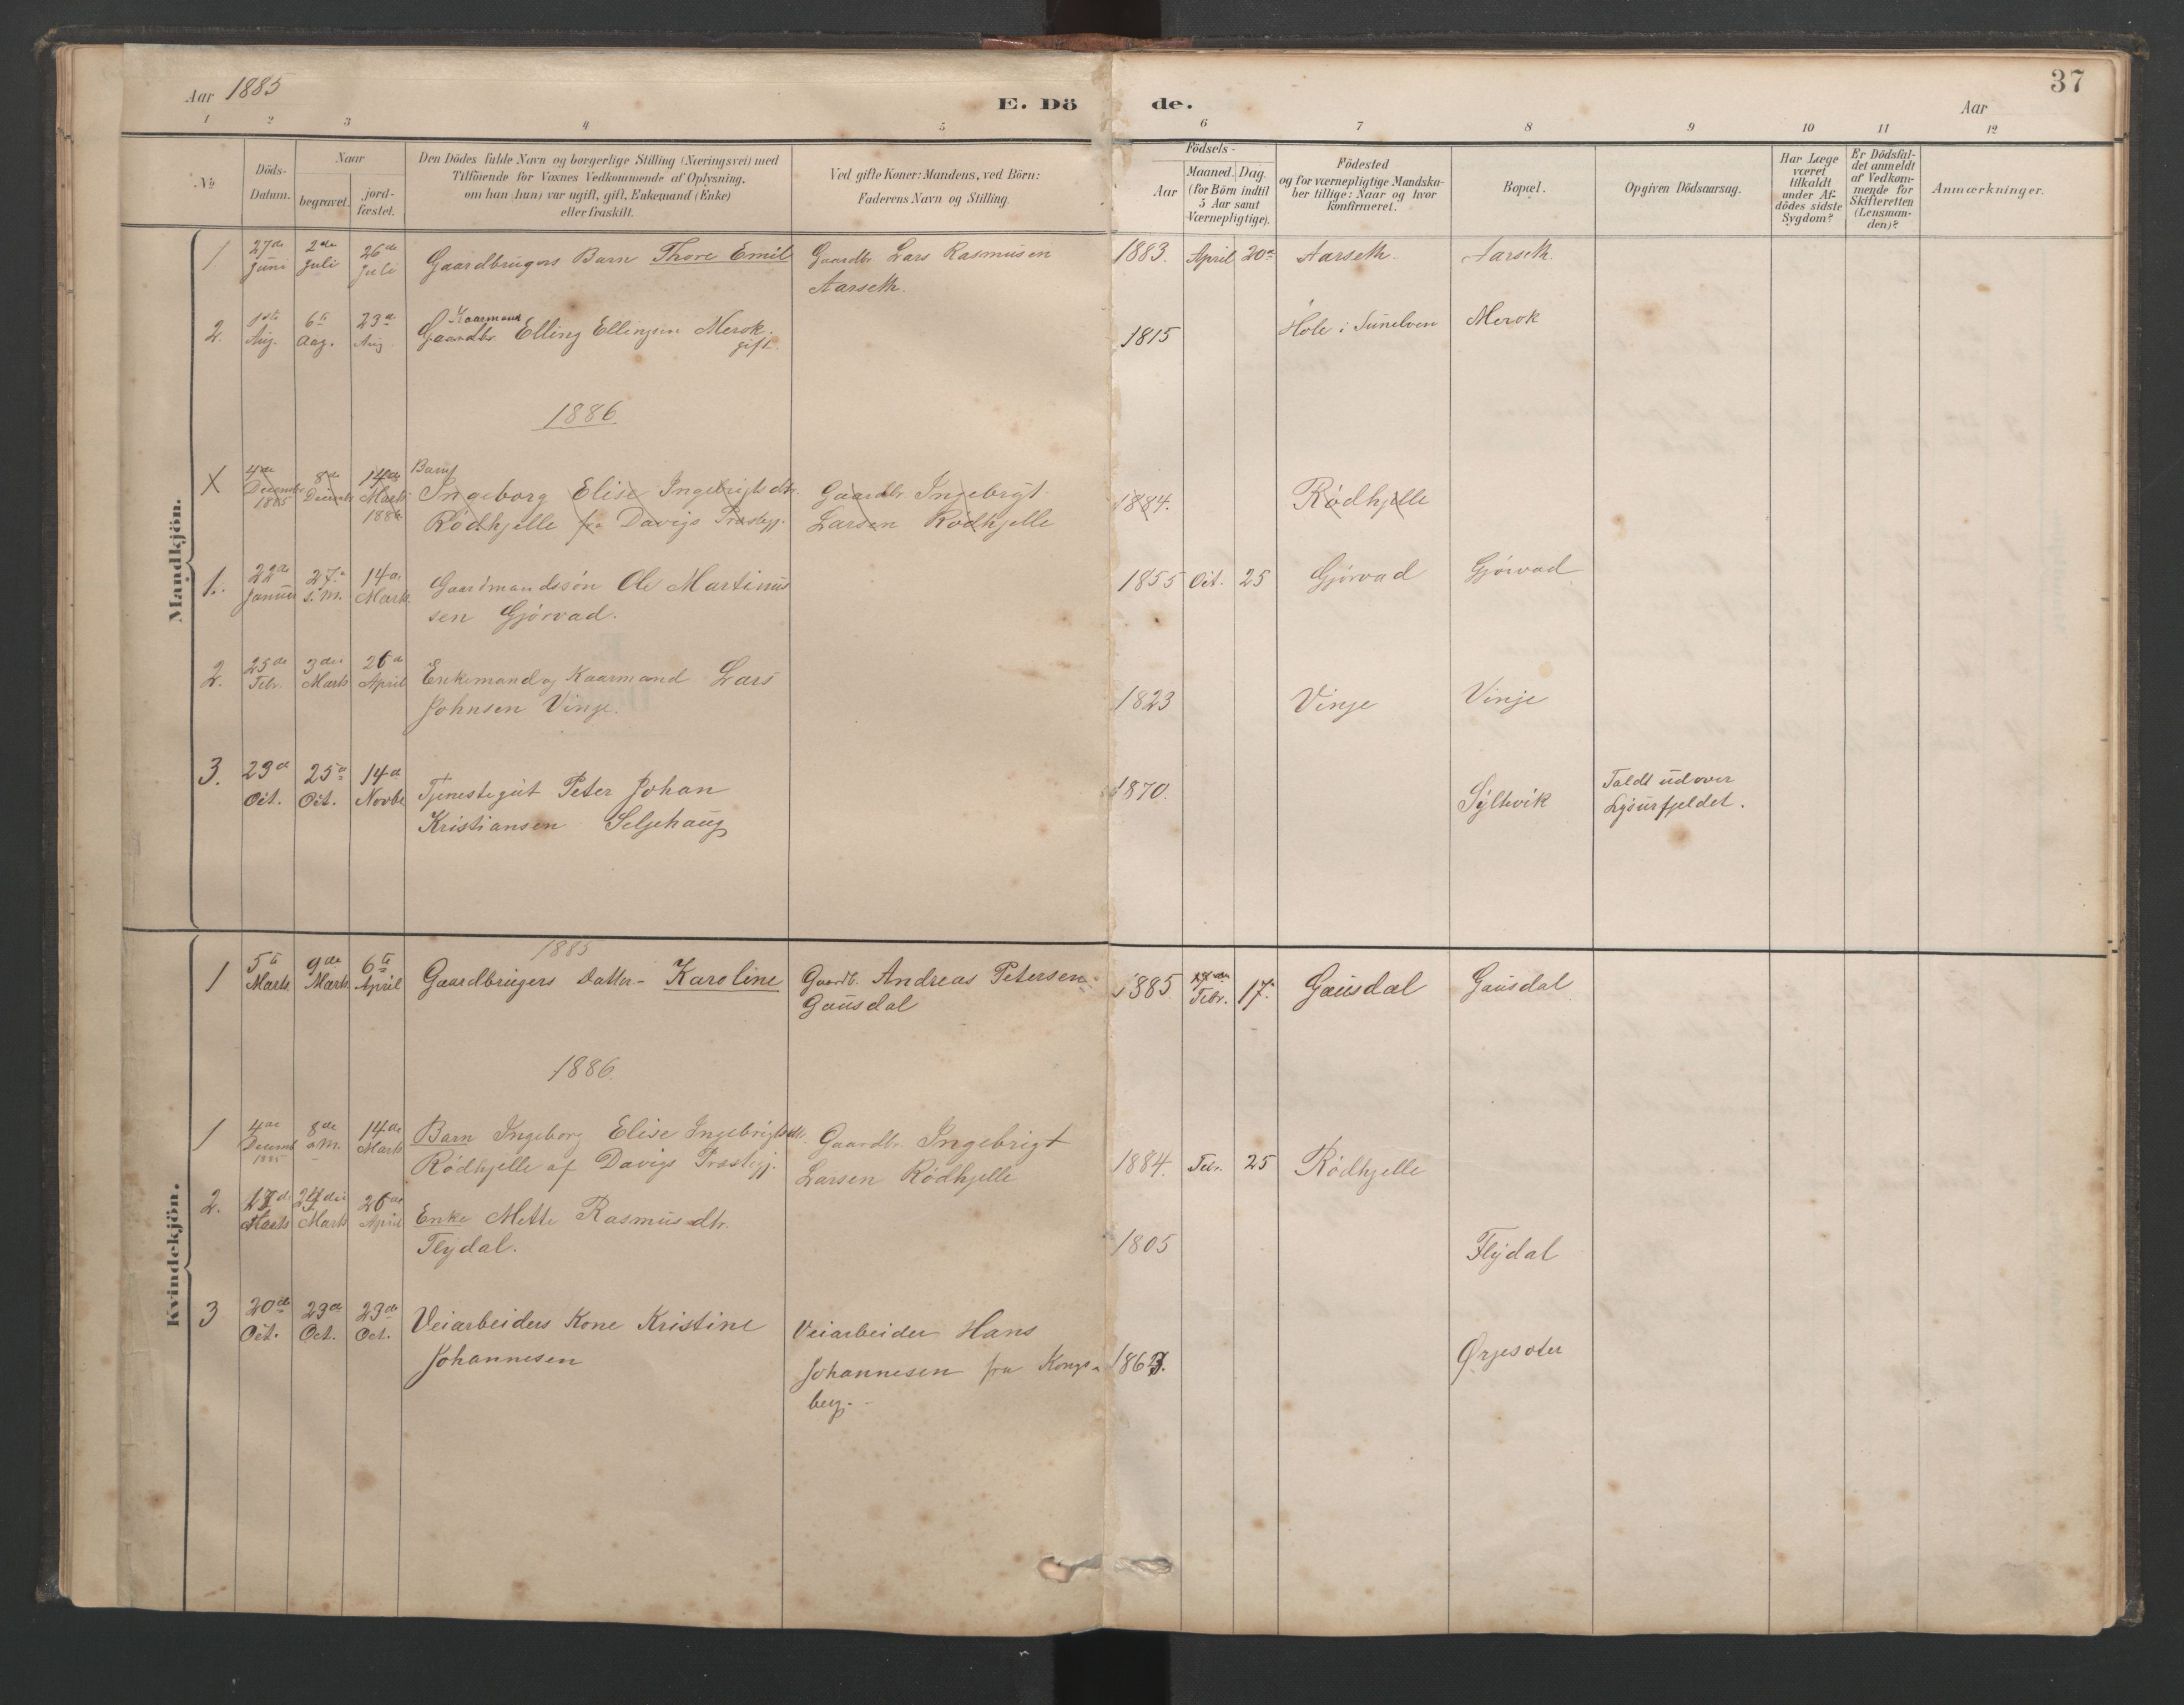 37
Aar 1885
E. Dö de.
Aar
1 2 3 4 5 6 7 8 9 10 11 12
No
Döds-Datum.
Naar
begravet.
jord-fæstet.
Den Dödes fulde Navn og borgerlige Stilling (Næringsvei) med
Tilföiende for Voxnes Vedkommende af Oplysning,
om han (hun) var ugift, gift, Enkemand (Enke)
eller fraskilt.
Ved gifte Koner: Mandens, ved Börn:
Faderens Navn og Stilling.
Födsels-
Aar
Maaned. Dag.
(for Börn indtil
5 Aar samt
Værnepligtige).
Födested
og for værnepligtige Mandska-
ber tillige: Naar og hvor
konfirmeret.
Bopæl.
Opgiven Dödsaarsag.
Har Læge
været
tilkaldt
under Af-
dödes sidste
Sygdom?
Er Dödsfal-
det anmeldt
af Vedkom-
mende for
Skifteretten
(Lensman-
den)?
Anmærkninger.
Mandkjön.
1. 27de Juni 2den Juli 26de Juli Gaardbrugers Barn Thore Emil Gaardbr Lars Rasmusen 1883. April 20de Aarseth. Aarseth.
Aarseth.
2. 1ste Aug. 6te Aug. 23de Aug Gaardbr. Kaarmand Elling Ellingsen Merok. 1815 Hole i Sunelven Merok
gift.
1886.
X 4de Decembr 1885 8de Decembr 14de Marts 1886 Barn
Ingeborg Elise Ingebrigtsdtr. Gaardbr Ingebrigt 1884. Rödhjelle
Rödhjelle fra Davigs Præstegj. Larsen Rödhjelle
1. 22de Januar 27. s. M. 14de Marts. Gaardmandssön Ole Martinus 1855 Oct. 25 Gjörvad Gjörvad
sen Gjörvad.
2. 25de Febr. 3die Marts 26de April Enkemand og Kaarmand Lars
Johnsen Vinje. 1823 Vinje Vinje
3. 23de Oct. 25de Oct. 14de Novbr Tjenestegut Peter Johan 1870. Syltevik Faldt ud over
Kristiansen Seljehaug Lysurfjeldet.
Kvindekjön.
1885
1 5te Marts 9de Marts 6te April Gaardbrugers Datter- Karoline Gaardb. Andreas Petersen 1885 Febr. 17. Gausdal Gausdal
Gausdal
1886.
1 4de Decemb 1885 8de s. M. 14de Marts Barn Ingeborg Elise Ingebrigtsdtr. Gaardbr. Ingebrigt 1884. Febr. 25 Rödhjelle
Rödhjelle af Davigs Præstegj. Larsen Rödhjelle
2. 17de Marts 24de Marts 26de April Enke Mette Rasmusdtr.
Flydal. 1805 Flydal
3 20de Oct. 23de Oct. 23de Oct. Veiarbeiders Kone Kristine Veiarbeider Hans
Johannesen Johannesen fra Kongs- 1863. Ørjesæter
berg.